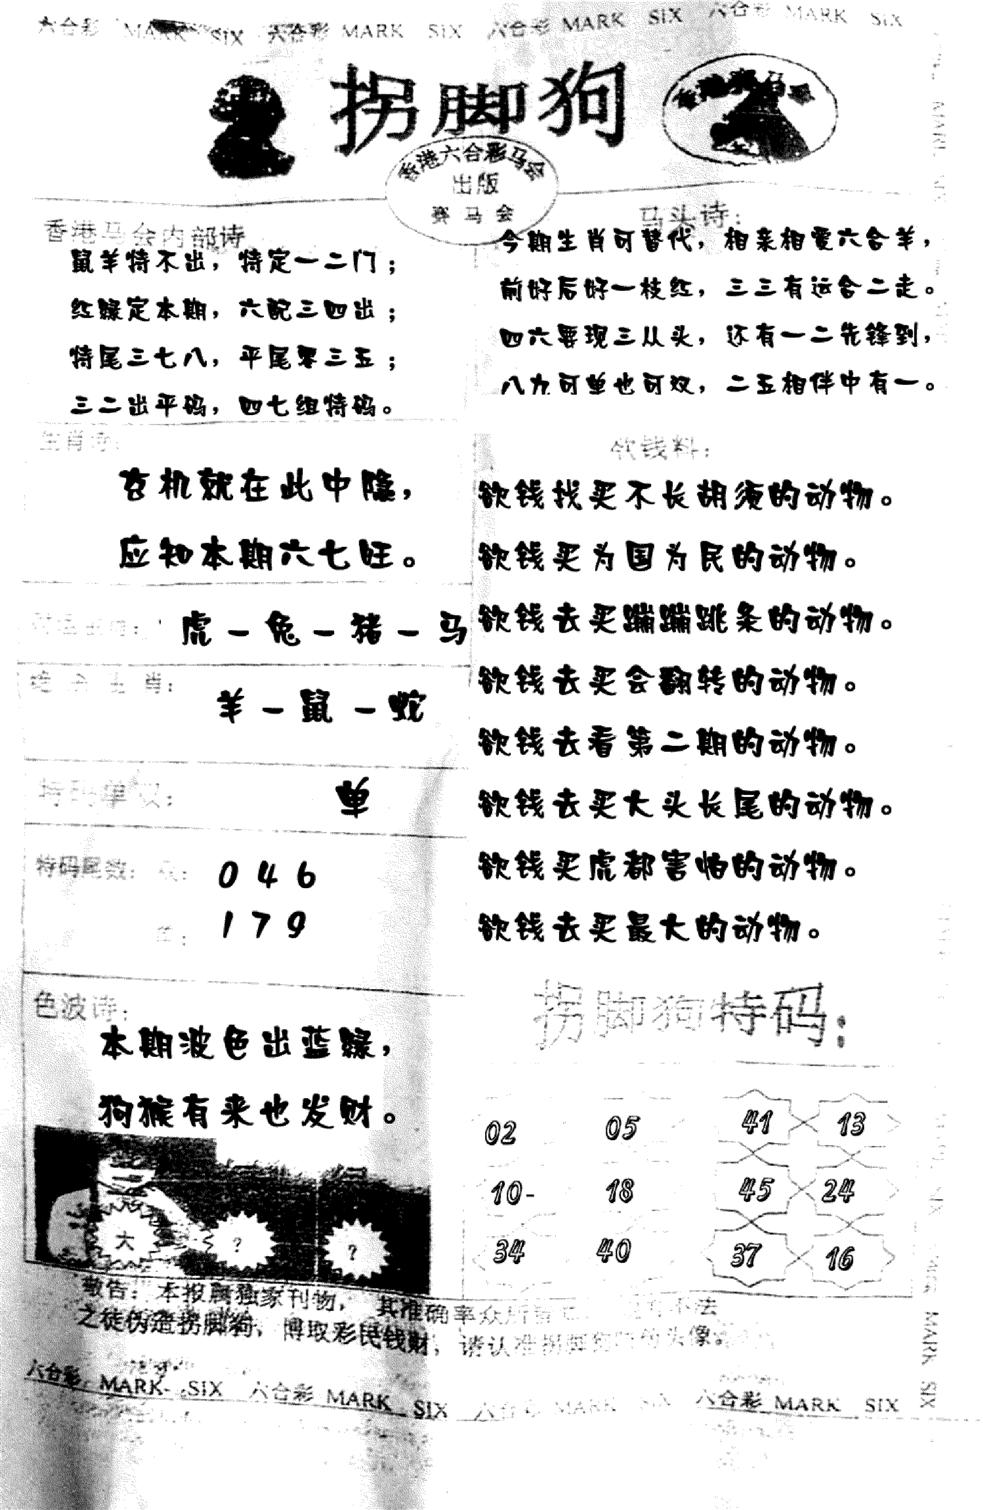 六合彩 MARK SIX 六合彩 MARK SIX 六合彩 MARK SIX 六合彩 MARK SIX
拐脚狗
香港赛马会
香港六合彩马会
出版
赛马会
香港马会内部诗
鼠羊特不出，特定一二门；
红绿定本期，六配三四出；
特尾三七八，平尾零三五；
三二出平码，四七组特码。
马头诗：
今期生肖可替代，相亲相爱六合羊，
前好后好一枝红，三三有运合二走。
四六要现三从头，还有一二先锋到，
八九可单也可双，二五相伴中有一。
生肖诗：
玄机就在此中隐，
应知本期六七旺。
虎－兔－猪－马
绝杀生肖：
羊－鼠－蛇
特码单双：
单
特码尾数：双：
0 4 6
单：
1 7 9
色波诗：
本期波色出蓝绿，
狗猴有来也发财。
大 ？ ？
欲钱料：
欲钱找买不长胡须的动物。
欲钱买为国为民的动物。
欲钱去买蹦蹦跳条的动物。
欲钱去买会翻转的动物。
欲钱去看第二期的动物。
欲钱去买大头长尾的动物。
欲钱买虎都害怕的动物。
欲钱去买最大的动物。
拐脚狗特码：
02 05 41 13
10- 18 45 24
34 40 37 16
敬告：本报属独家刊物，其准确率众所皆 不法
之徒伪造拐脚狗，博取彩民钱财，请认准拐脚狗 的头像。
六合彩 MARK SIX 六合彩 MARK SIX 六合彩 MARK SIX 六合彩 MARK SIX
MARK SIX